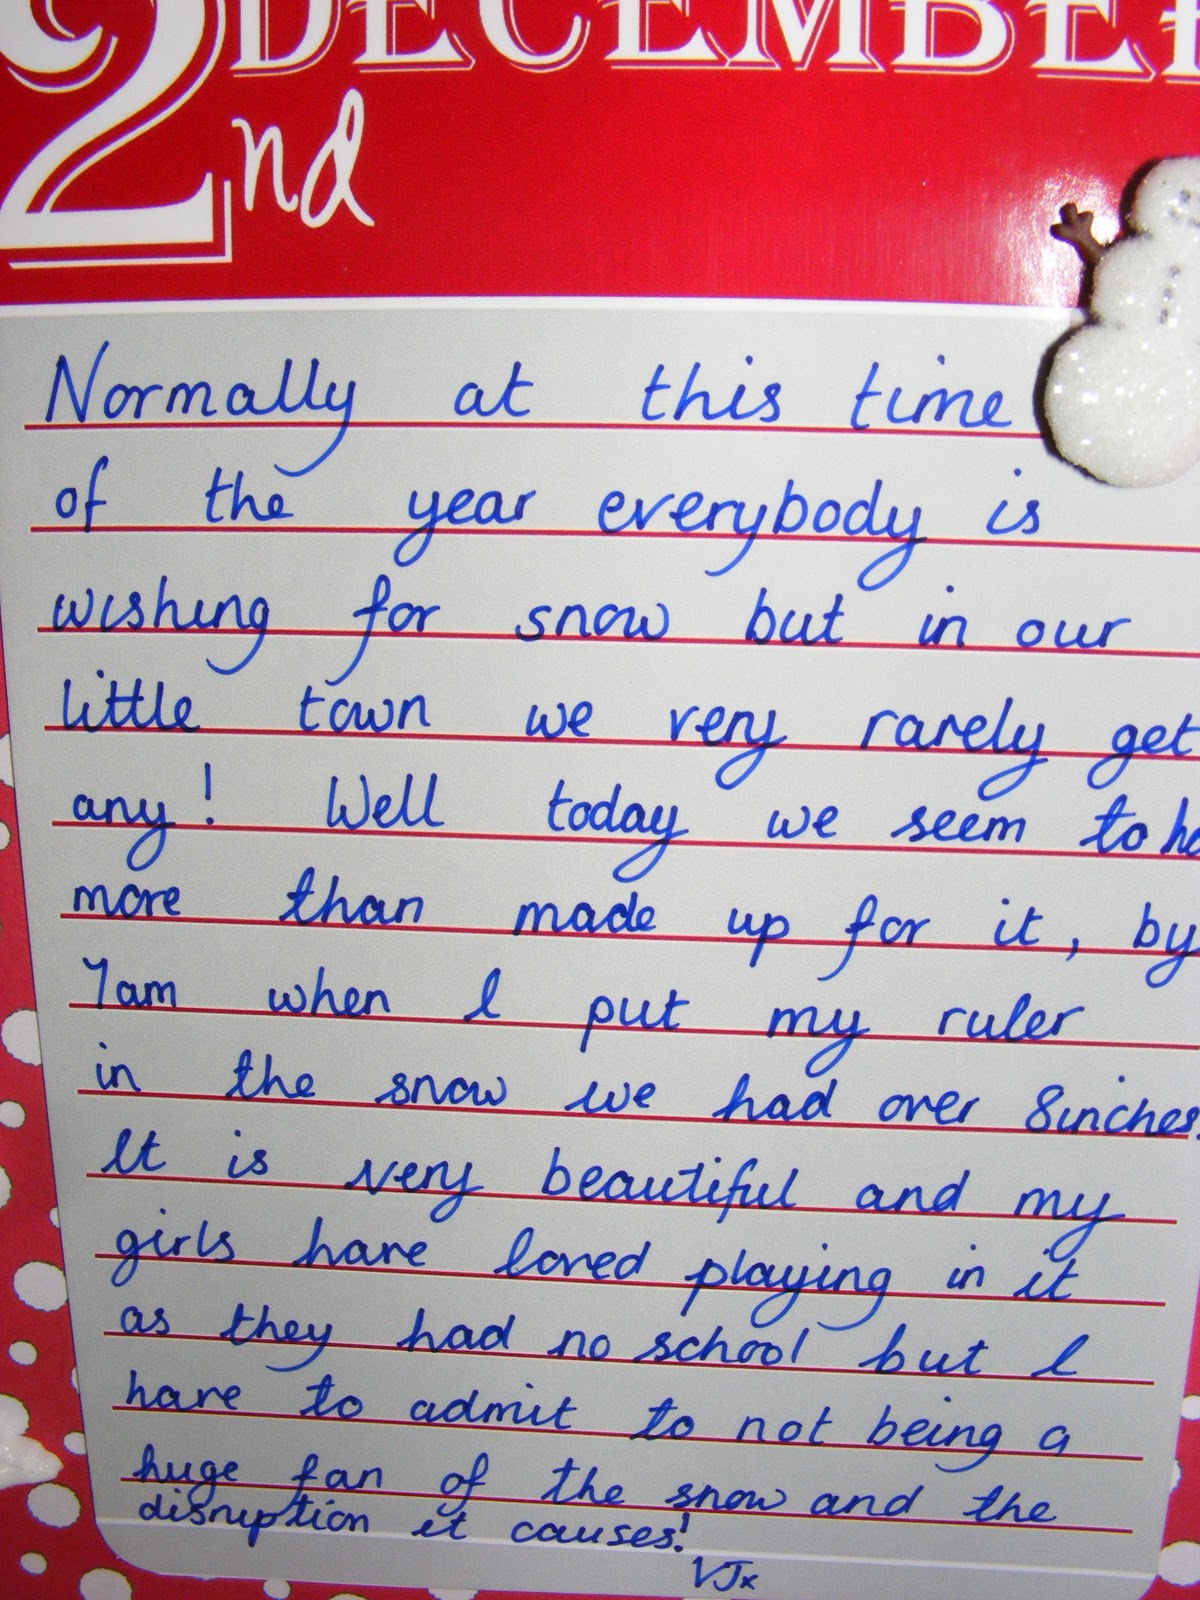 2nd DECEMBE
Normally at this time
of the year everybody is
wishing for snow but in our
little town we very rarely get
any! Well today we seem to ha
more than made up for it, by
7am when I put my ruler
in the snow we had over 8inches.
It is very beautiful and my
girls have loved playing in it
as they had no school but I
have to admit to not being a
huge fan of the snow and the
disruption it causes!
VJx